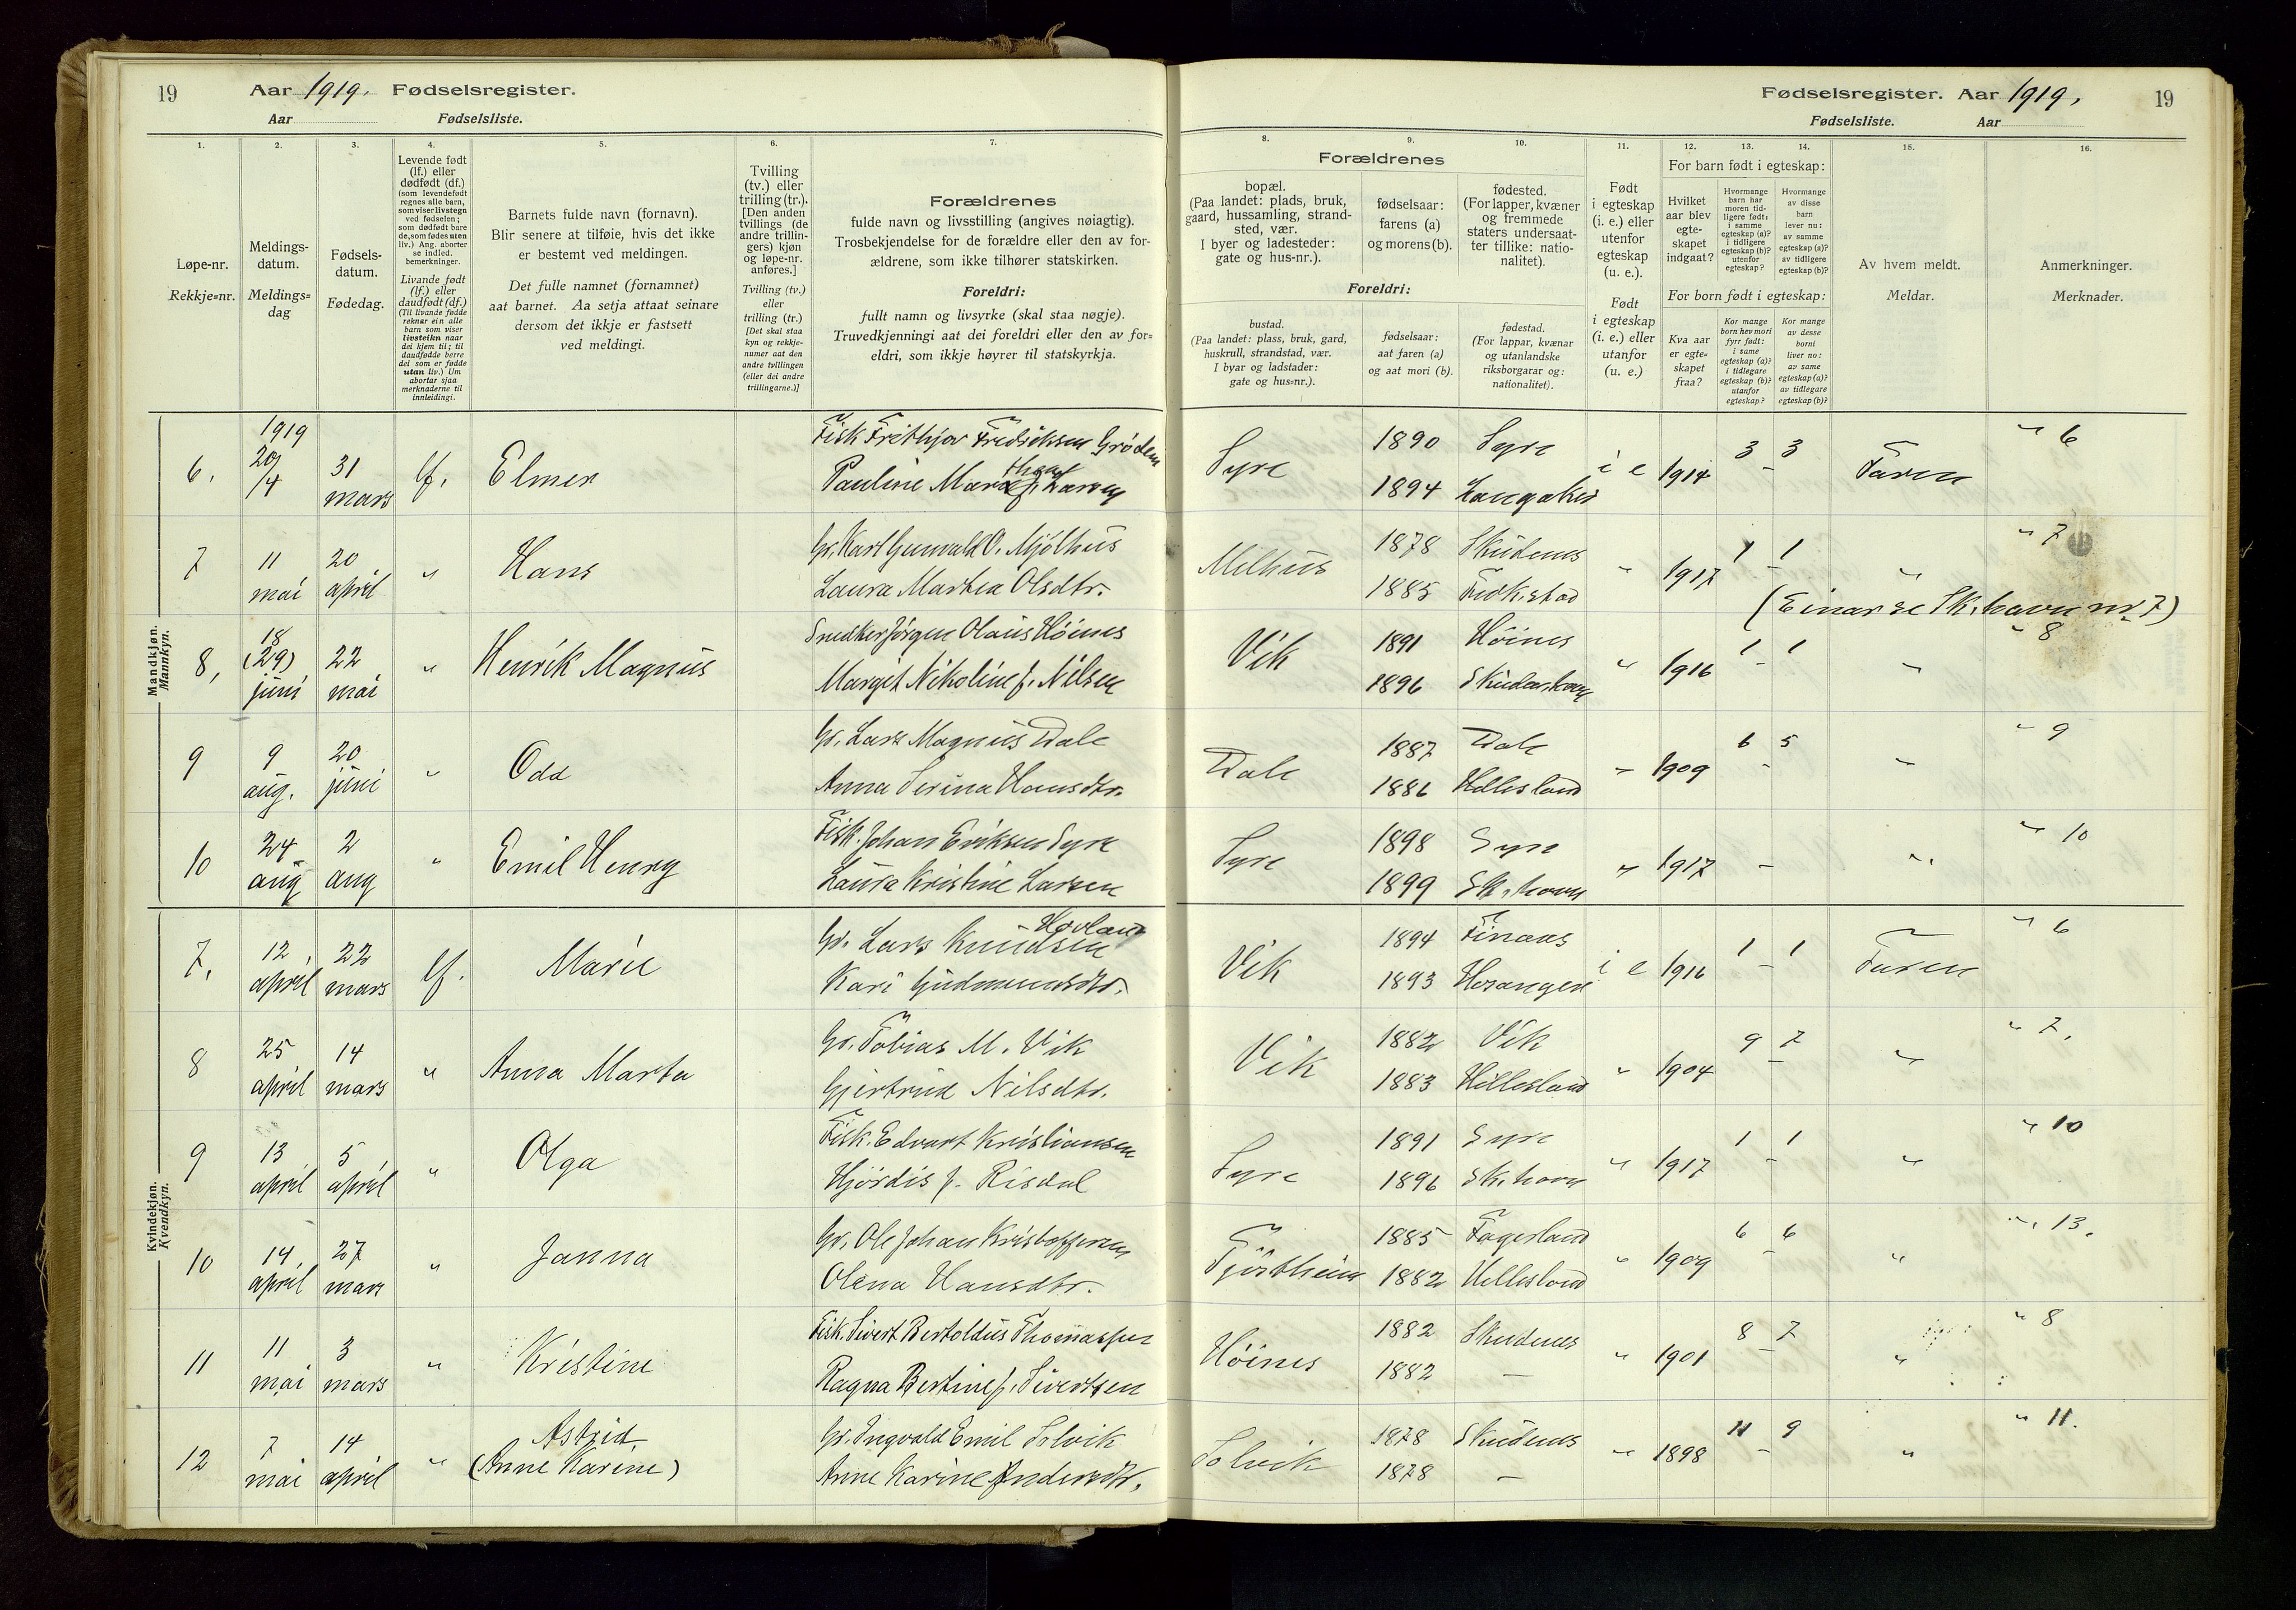 19
Aar 1919. Fødselsregister.
Aar Fødselsliste.
Fødselsregister. Aar 1919.
19
Fødselsliste. Aar
1.
Løpe-nr.
Rekkje-nr.
2.
Meldings-
datum.
Meldings-
dag
3.
Fødsels-
datum.
Fødedag.
4.
Levende født
(lf.) eller
dødfødt (df.)
(som levendefødt
regnes alle barn,
som viser livstegn
ved fødselen;
som dødfødt bare
de, som fødes uten
liv.) Ang. aborter
se indled.
bemerkninger.
Livande født
(lf.) eller
daudfødt (df.)
(Til livande fødde
reknar ein alle
barn som viser
livsteikn naar
dei kjem til; til
daudfødde berre
dei som er fødde
utan liv.) Um
abortar sjaa
merknaderne til
innleidingi.
5.
Barnets fulde navn (fornavn).
Blir senere at tilføie, hvis det ikke
er bestemt ved meldingen.
Det fulle namnet (fornamnet)
aat barnet. Aa setja attaat seinare
dersom det ikkje er fastsett
ved meldingi.
6.
Tvilling
(tv.) eller
trilling (tr.).
[Den anden
tvillings (de
andre trillin-
gers) kjøn
og løpe-nr.
anføres.]
Tvilling (tv.)
eller
trilling (tr.)
[Det skal staa
kyn og rekkje-
numer aat den
andre tvillingen
(eller dei andre
trillingarne.)]
7.
Forældrenes
fulde navn og livsstilling (angives nøiagtig).
Trosbekjendelse for de forældre eller den av for-
ældrene, som ikke tilhører statskirken.
Foreldri:
fullt namn og livsyrke (skal staa nøgje).
Truvedkjenningi aat dei foreldri eller den av for-
eldri, som ikkje høyrer til statskyrkja.
Forældrenes
8.
bopæl.
(Paa landet: plads, bruk,
gaard, hussamling, strand-
sted, vær.
I byer og ladesteder:
gate og hus-nr.).
9.
fødselsaar:
farens (a)
og morens (b).
10.
fødested.
(For lapper, kvæner
og fremmede
staters undersaat-
ter tillike: natio-
nalitet).
Foreldri:
bustad.
(Paa landet: plass, bruk, gard,
huskrull, strandstad, vær.
I byar og ladstader:
gate og hus-nr.).
fødselsaar:
aat faren (a)
og aat mori (b).
fødestad.
(For lappar, kvænar
og utanlandske
riksborgarar og:
nationalitet).
11.
Født
i egteskap
(i. e.) eller
utenfor
egteskap
(u. e.).
Født
i egteskap
(i. e.) eller
utanfor
(u. e.)
12. 13. 14.
For barn født i egteskap:
Hvilket
aar blev
egte-
skapet
indgaat?
Hvormange
barn har
moren tid-
ligere født:
i samme
egteskap (a)?
i tidligere
egteskap (b)?
utenfor
egteskap?
Hvormange
av disse
barn
lever nu:
av samme
egteskap (a)?
av tidligere
egteskap (b)?
For born født i egteskap:
Kva aar
er egte-
skapet
fraa?
Kor mange
born hev mori
fyrr født:
i same
egteskap (a)?
i tidlegare
egteskap (b)?
utanfor
egteskap?
Kor mange
av desse
borni
liver no:
av same
egteskap (a)?
av tidlegare
egteskap (b)?
15.
Av hvem meldt.
Meldar.
16.
Anmerkninger.
Merknader.
Mandkjøn.
Mannkyn.
6. 1919 20/4 31 mars lf. Elmer Fisk Frithjov Fredriksen Grødem Syre 1890 Syre i e 1914 3 - 3 Faren " 6
Pauline Martha f. Larsen 1894 Langaker
7 11 mai 20 april " Hans Gr. Karl Gunvald O. Mjølhus Milhus 1878 Skudenes " 1917 1 - 1 " " 7
Laura Martea Olsdtr. 1885 Fredk.stad (Einar se Sk.havn nr. 7)
8, 18 (29) juni 22 mai " Henrik Magnus Snedker Jørgen Olaus Høines Vik 1891 Høines " 1916 1 - 1 " " 8
Margit Nikoline f. Nilsen 1896 Skudeshavn
9 9 aug. 20 juni " Odd Gr. Lars Magnus Dale Dale 1887 Dale " 1909 6 - 5 " " 9
Anna Serina Hansdtr. 1886 Hellesland
10 24 aug 2 aug " Emil Henry Fisk. Johan Eriksen Syre Syre 1898 Syre " 1917 - " " 10
Laura Kristine Larsen 1899 Sk.havn
Kvindekjøn.
Kvendkyn.
7. 12 april 22 mars lf. Marie Gr. Lars Knudsen Hovland Vik 1894 Finaas i e 1916 1 - 1 Faren " 6
Kari Gudmundsdtr. 1893 Hosanger
8 25 april 14 mars " Anna Marta Gr. Tobias M. Vik Vik 1882 Vik " 1904 9 - 7 " " 7.
Gjertrud Nilsdtr. 1883 Hillesland
9 13 april 5 april " Olga Fisk. Edvart Kristiansen Syre 1891 Syre " 1917 1 - 1 " " 10
Hjørdis f. Risdal 1896 Sk.havn
10 14 april 27 mars " Janna Gr. Ole Johan Kristoffersen 1885 Fagerland " 1909 6 - 6 " " 13.
Olena Hansdtr. 1882 Hellesland
11 11 mai 3 mars " Kristine Fisk. Sivert Bertoldus Thomassen Høines 1882 Skudenes " 1901 8 - 7 " " 8
Ragna Bertine f. Sivertsen 1882 —
12 7 mai 14 april " Astrid Gr. Ingvald Emil Solvik Solvik 1878 Skudenes " 1898 11 - 9 " " 11.
(Anne Karine) Anne Karine Andersdtr. 1878 —